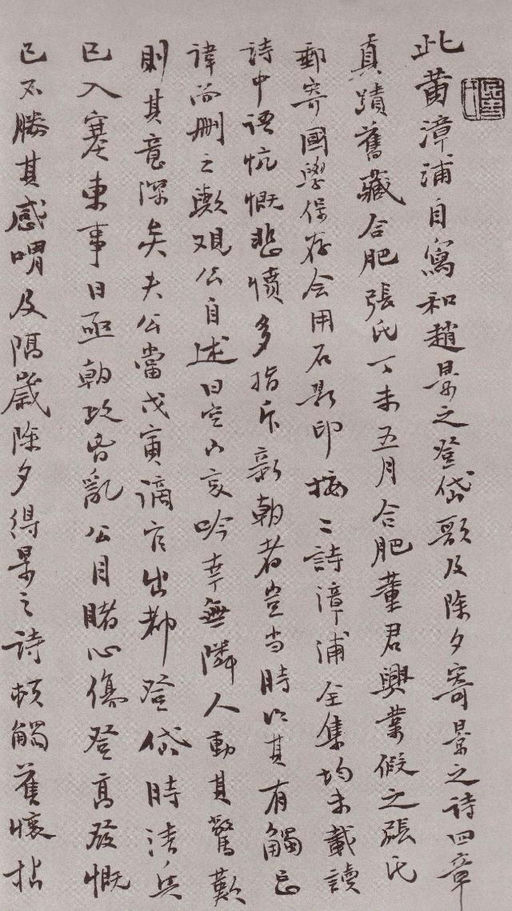 此黄漳浦自寫和趙景之登岱歌及除夕寄景之詩四章
真蹟舊藏合肥張氏丁未五月合肥董君興業假之張氏
郵寄國學保存会用石影印按二詩漳浦全集均未載讀
詩中語忼慨悲憤多指斥新朝者豈当時以其有觸忌
諱而刪之歟觀公自述曰空山哀吟幸無隣人動其驚歎
則其意深矣夫公當戊寅謫官出都登岱時清兵
已入塞東事日亟朝政昏亂公目睹心傷登高發慨
已不勝其感喟及隔歲除夕得景之詩頓觸舊懷拈